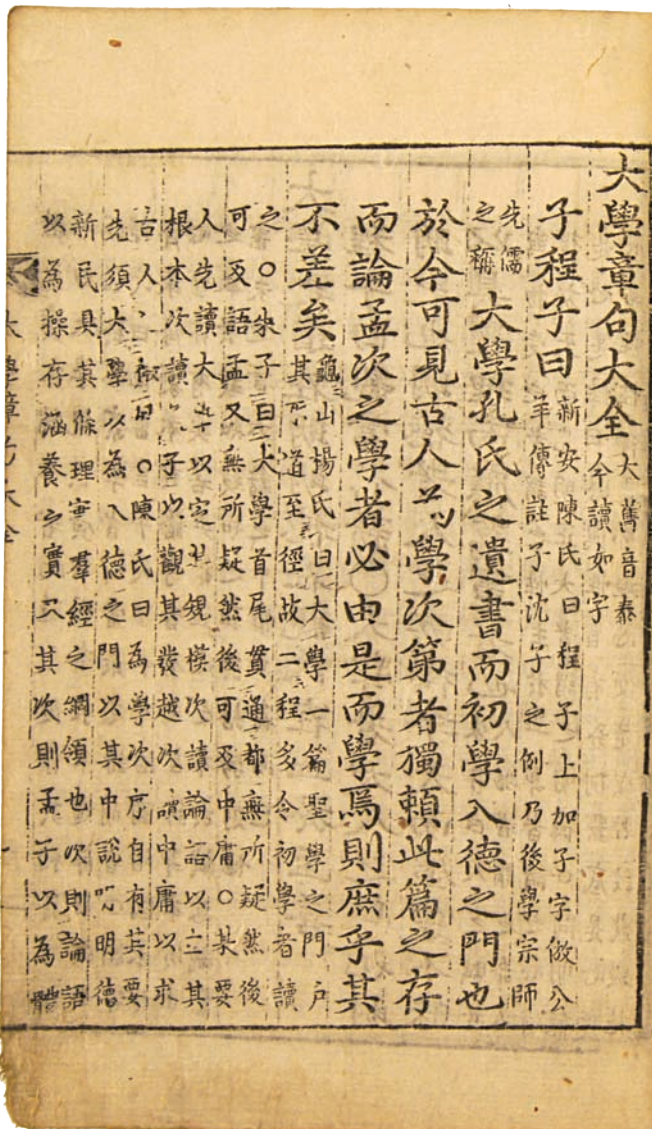 大學章句大全大舊音泰
今讀如字
子程子曰新安陳氏曰程子上加子字倣公
羊傳註子沈子之例乃後學宗師
先儒
之稱大學孔氏之遺書而初學入德之門也
於今可見古人為學次第者獨賴此篇之存
而論孟次之學者必由是而學焉則庶乎其
不差矣龜山楊氏曰大學一篇聖學之門戶
其道至徑故二程多令初學者讀
之○朱子曰大學首尾貫通都無所疑然後
可及語孟又無所疑然後可及中庸○某要
人先讀大學以定其規模次讀論語以立其
根本次讀子以觀其發越次讀中庸以求
古人○陳氏曰為學次序自有其要
先須大學以為入德之門以其中說明德
新民具其條理實羣經之綱領也次則論語
以為操存涵養之實又其次則孟子以為體
大學章句大全